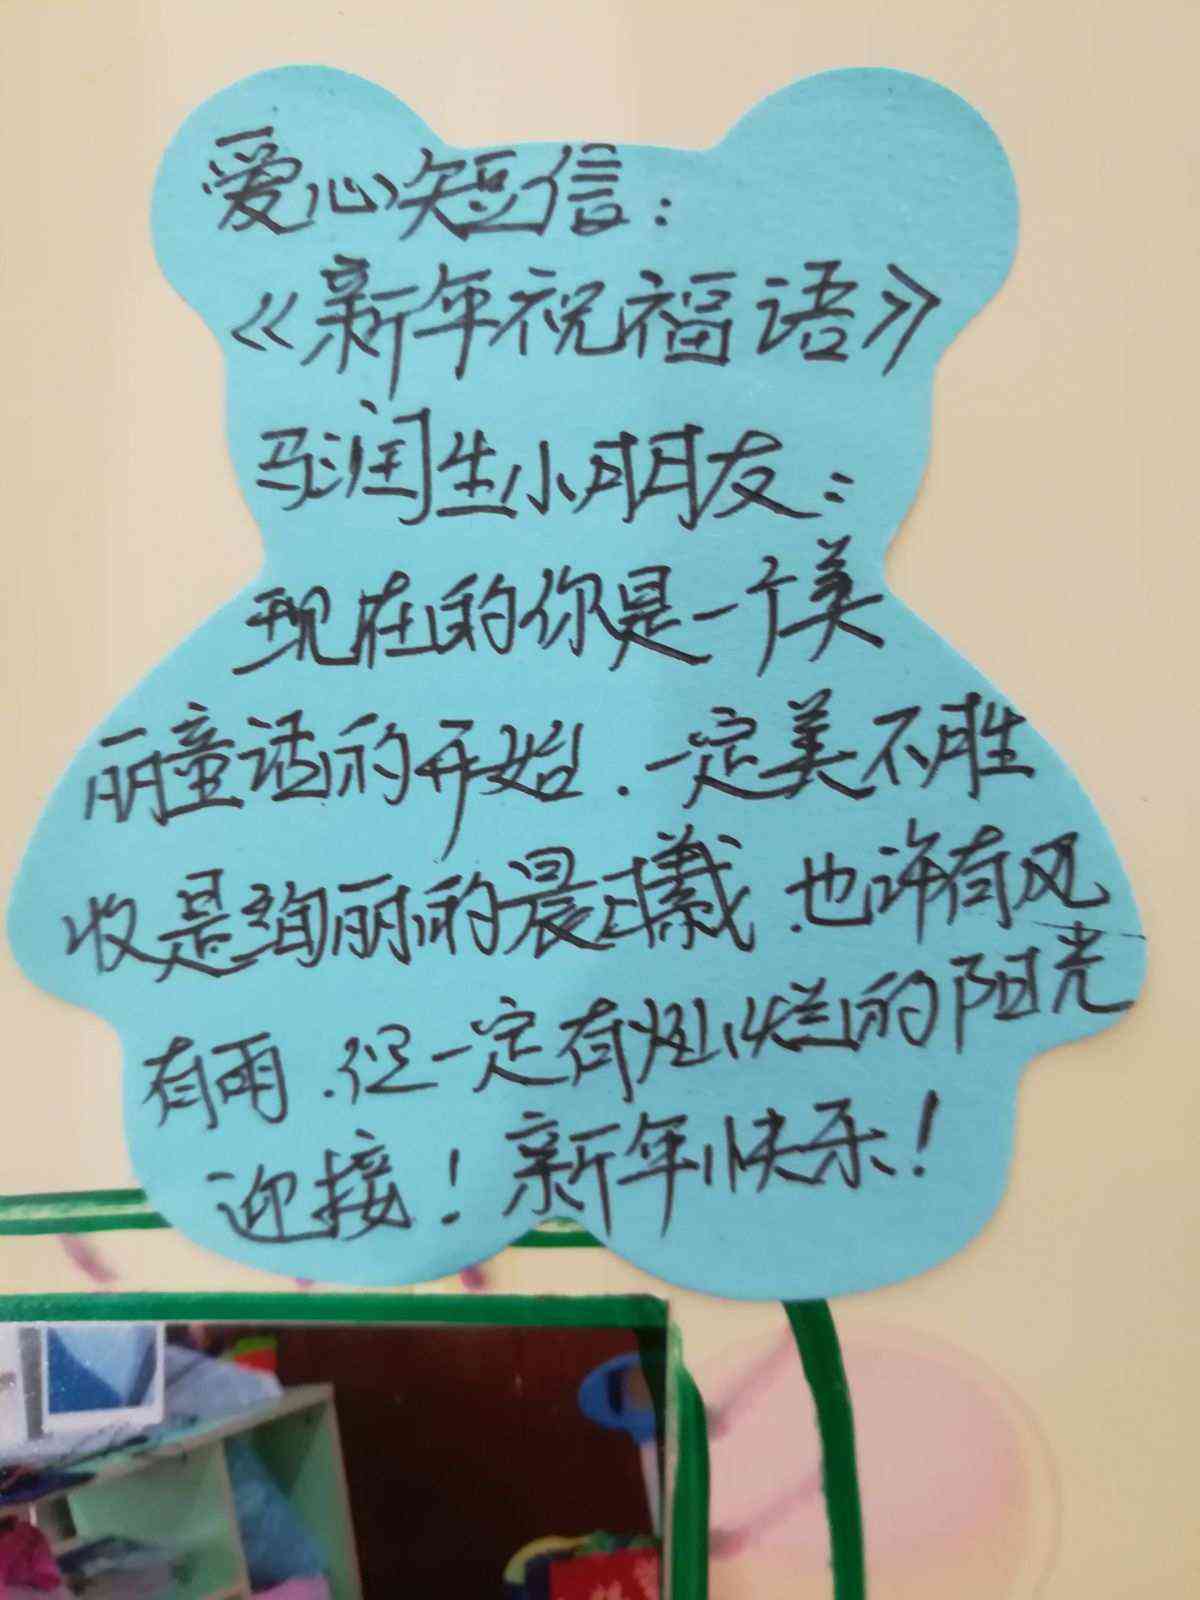 爱心短信:
《新年祝福语》
马润生小朋友:
现在的你是一个美
丽童话的开始.一定美不胜
收是绚丽的晨曦.也许有风
有雨.但一定有灿烂的阳光
迎接!新年快乐!